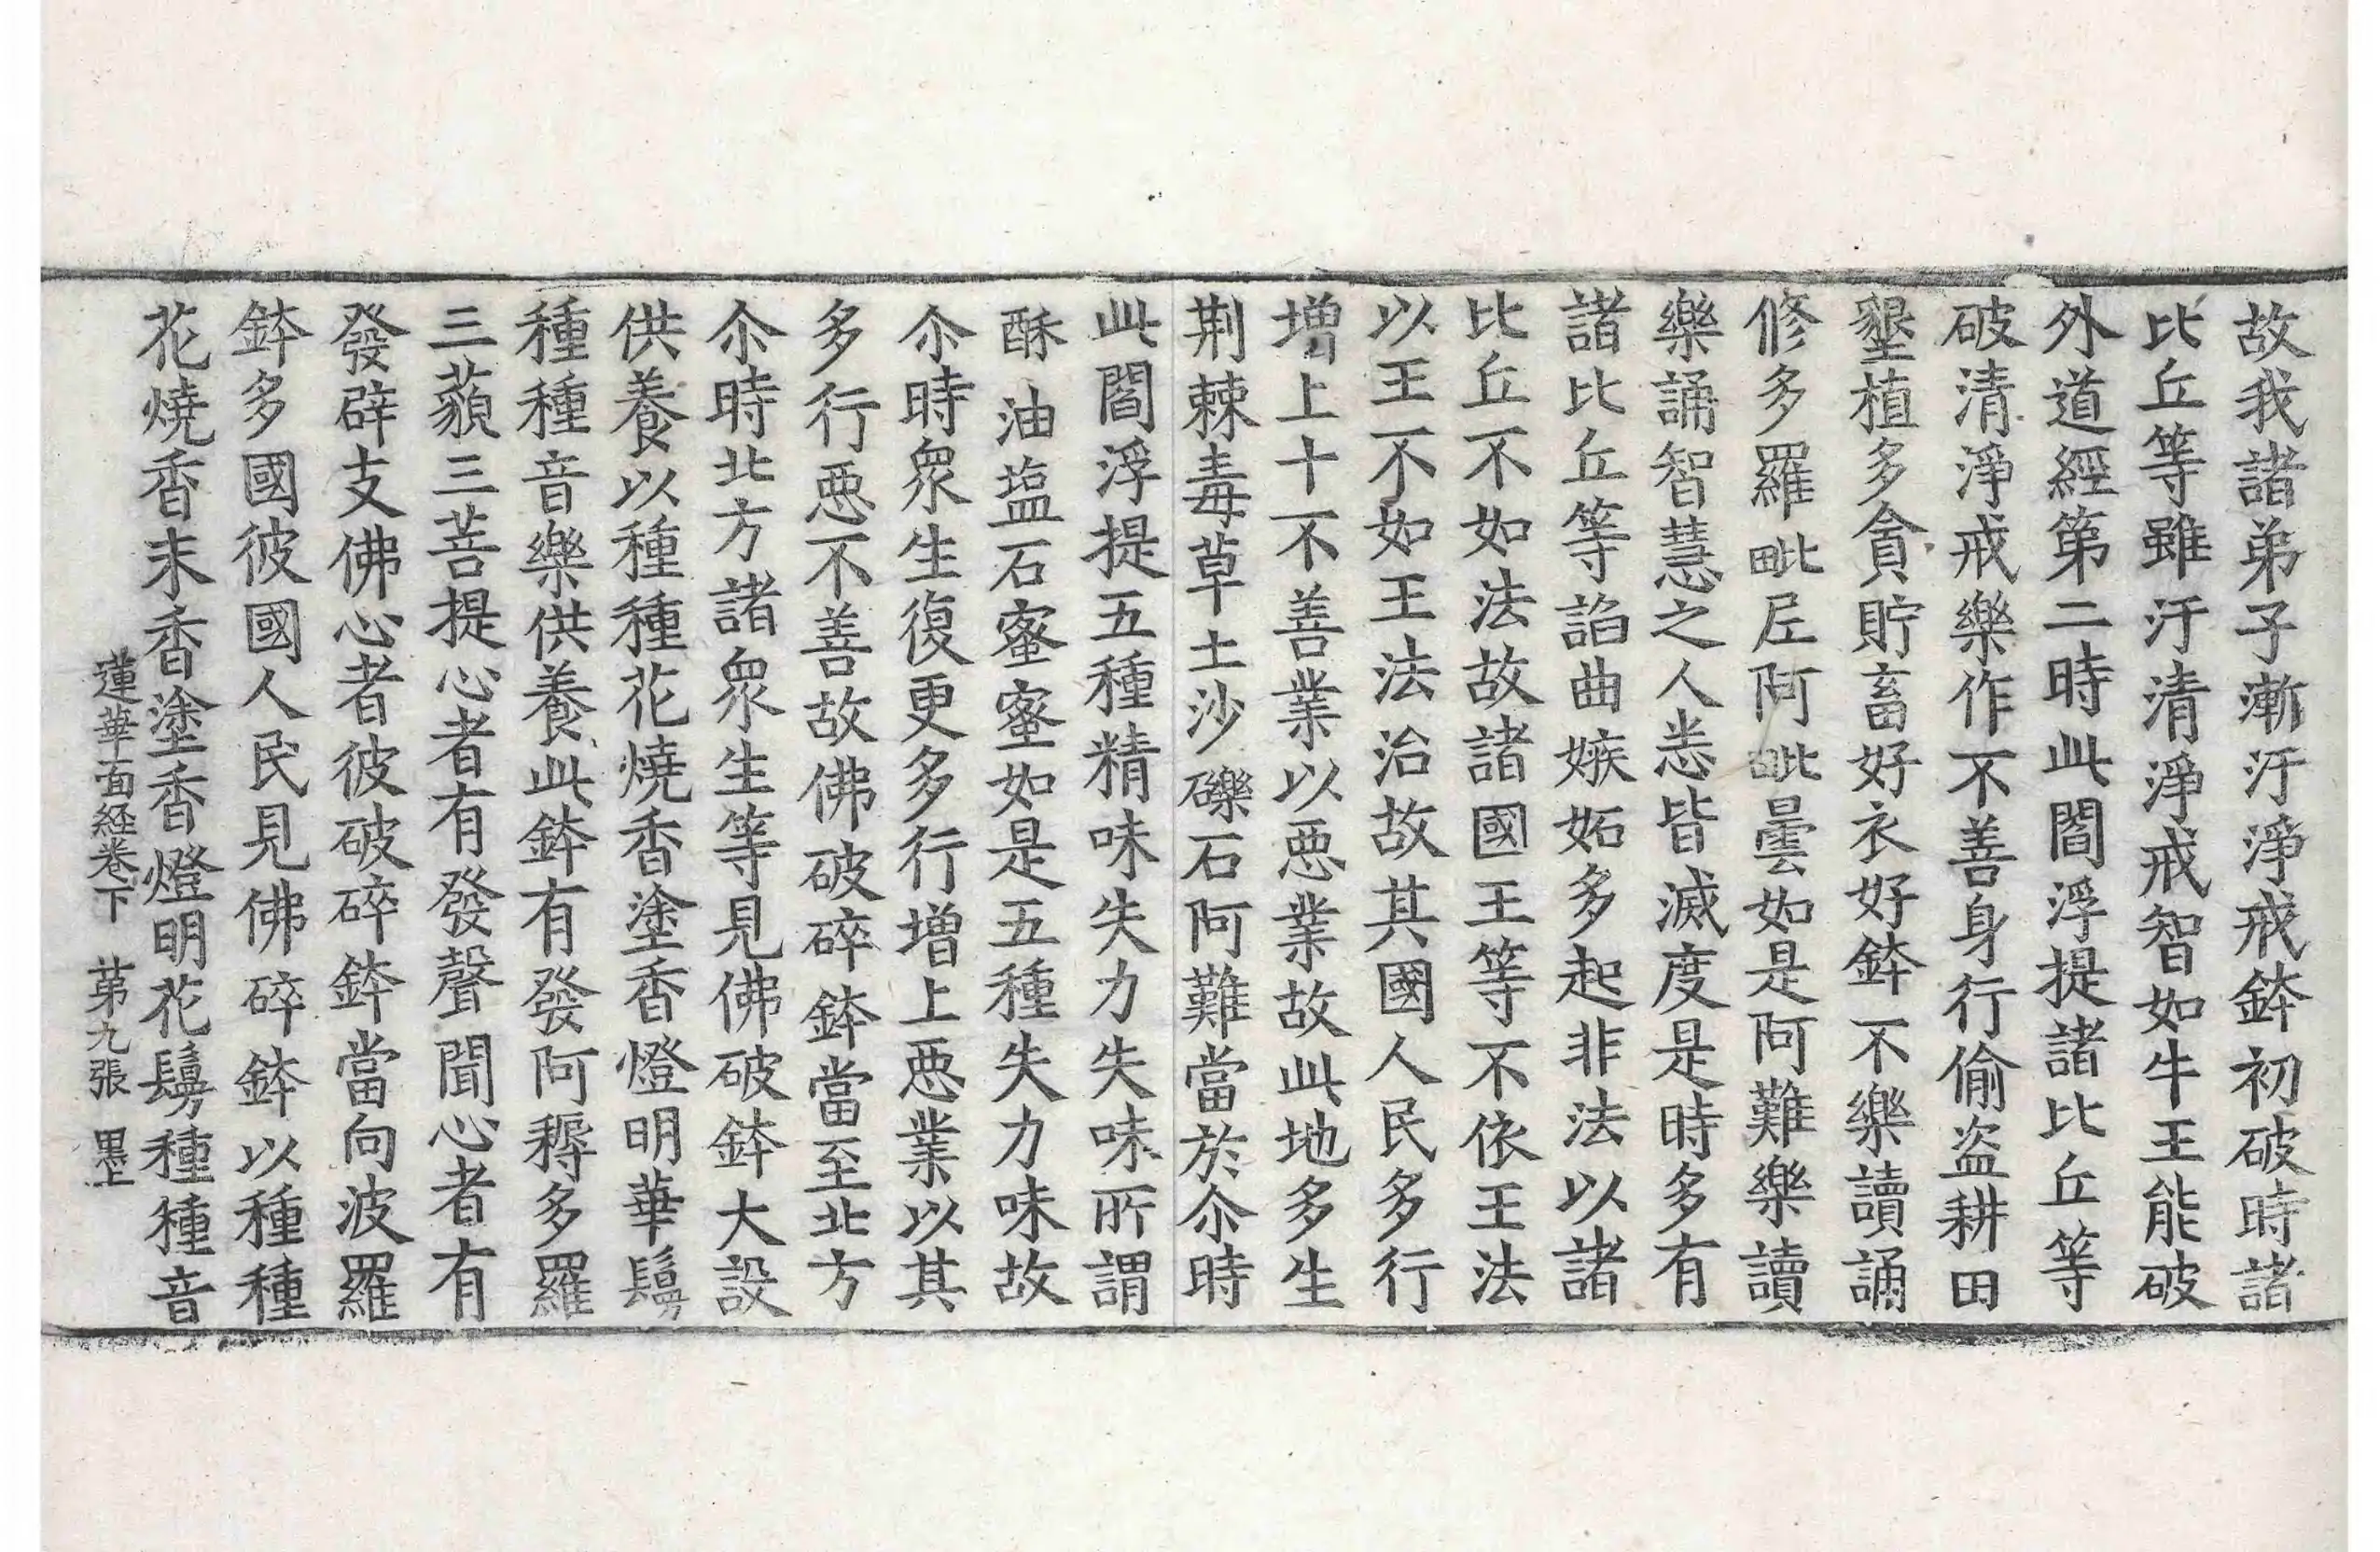 故我諸弟子漸汙淨戒鉢初破時諸
比丘等雖汙清淨戒智如牛王能破
外道經第二時此閻浮提諸比丘等
破清淨戒樂作不善身行偷盗耕田
墾植多貪貯畜好衣好鉢不樂讀誦
修多羅毗尼阿毗曇如是阿難樂讀
樂誦智慧之人悉皆滅度是時多有
諸比丘等諂曲嫉妬多起非法以諸
比丘不如法故諸國王等不依王法
以王不如王法治故其國人民多行
增上十不善業以惡業故此地多生
荆棘毒草土沙礫石阿難當於尒時
此閻浮提五種精味失力失味所謂
酥油塩石蜜蜜如是五種失力味故
尒時衆生復更多行增上惡業以其
多行惡不善故佛破碎鉢當至北方
尒時北方諸衆生等見佛破鉢大設
供養以種種花燒香塗香燈明華鬘
種種音樂供養此鉢有發阿耨多羅
三藐三菩提心者有發聲聞心者有
發辟支佛心者彼破碎鉢當向波羅
鉢多國彼國人民見佛碎鉢以種種
花燒香末香塗香燈明花鬘種種音
蓮華面経卷下 苐九張 墨